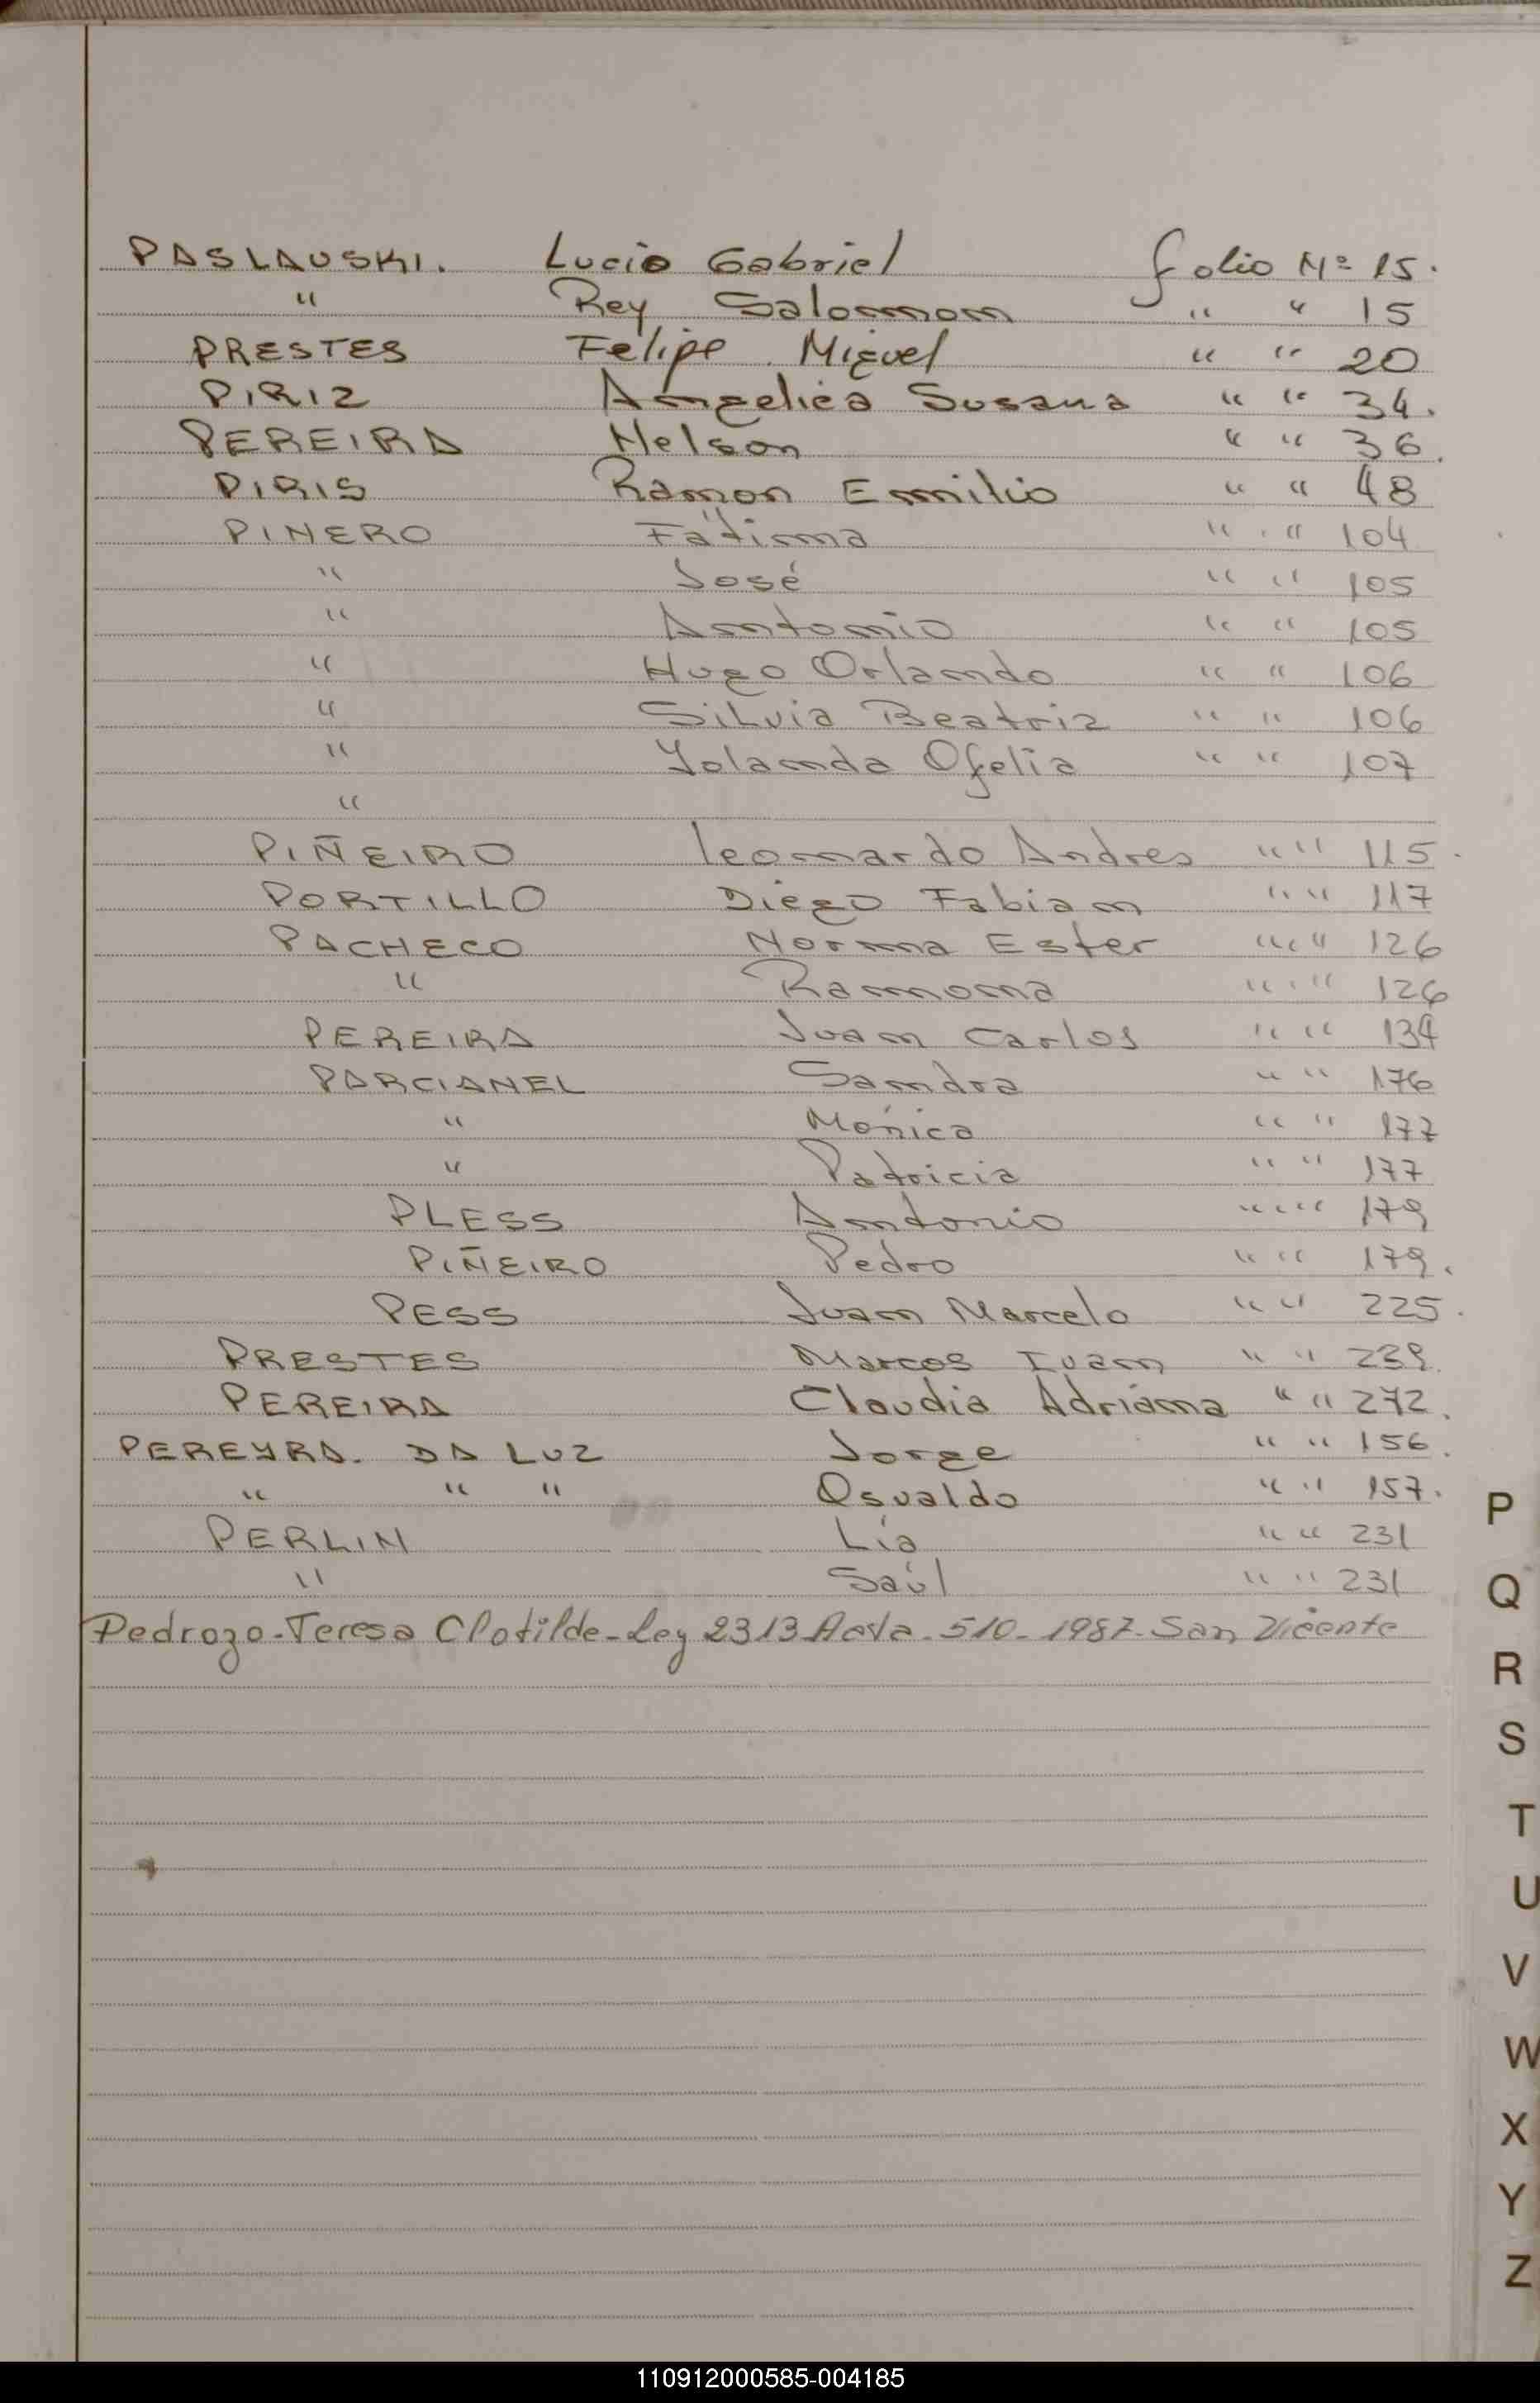 PASLAUSKI. Lucio Gabriel folio Nº 15.
" Rey Salomom " " 15
PRESTES Felipe Miguel " " 20
PIRIZ Angelica Susana " " 34.
PEREIRA Nelson " " 36.
PIRIS Ramon Emilio " " 48
PINERO Fatima " " 104
" José " " 105
" Antonio " " 105
" Hugo Orlando " " 106
" Silvia Beatriz " " 106
" Yolanda Ofelia " " 107
"
PIÑEIRO Leonardo Andres " " 115.
PORTILLO Diego Fabian " " 117
PACHECO Norma Ester " " 126
" Ramona " " 126
PEREIRA Juan Carlos " " 134
PARCIANEL Sandra " " 176
" Mónica " " 177
" Patricia " " 177
PLESS Antonio " " 179
PIÑEIRO Pedro " " 179.
PESS Juan Marcelo " " 225.
PRESTES Marcos Ivan " " 239.
PEREIRA Claudia Adriana " " 272.
PEREYRA. DA LUZ Jorge " " 156.
" " " Osvaldo " " 157.
PERLIN Lía " " 231
" Saúl " " 231
Pedrozo-Teresa Clotilde-Ley 2313 Acta-510-1987-San Vicente
P
Q
R
S
T
U
V
W
X
Y
Z
110912000585-004185